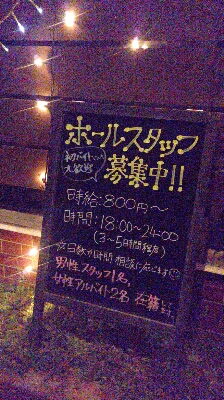 ホールスタッフ
初バイトさん
大歓迎
募集中!!
時給:800円〜
時間:18:00〜24:00
(3〜5時間程度)
☆日数や時間 相談に応じます☺
男性スタッフ1名、
女性アルバイト2名 在籍して
ます。